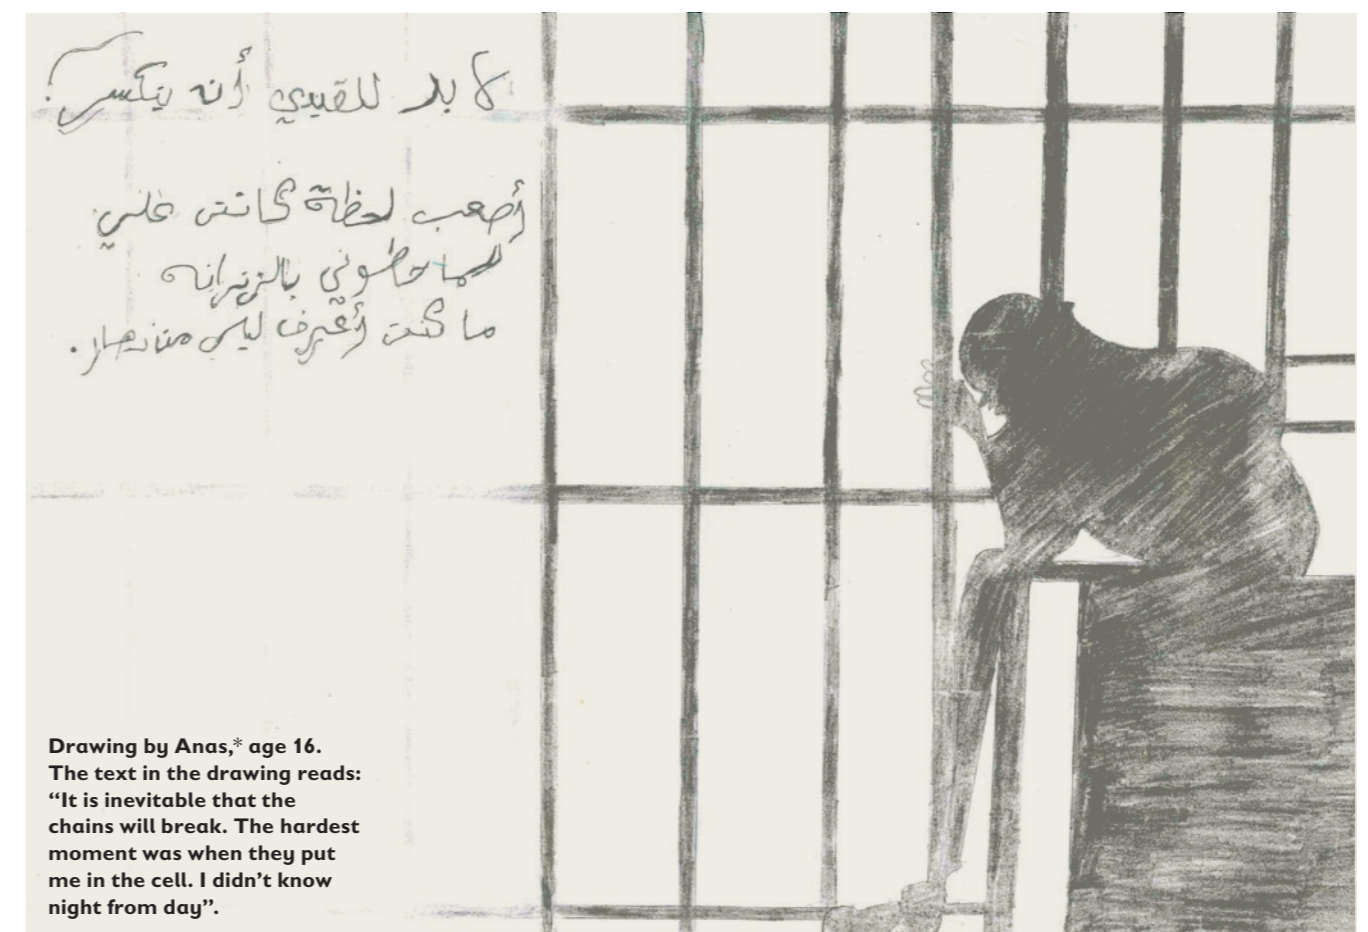 لا بد للقيدي أن ينكسر
أصعب لحظة كانت علي
لما حطوني بالزنزانه
ما كنت أعرف ليلي من نهار.
Drawing by Anas,* age 16.
The text in the drawing reads:
“It is inevitable that the
chains will break. The hardest
moment was when they put
me in the cell. I didn’t know
night from day”.